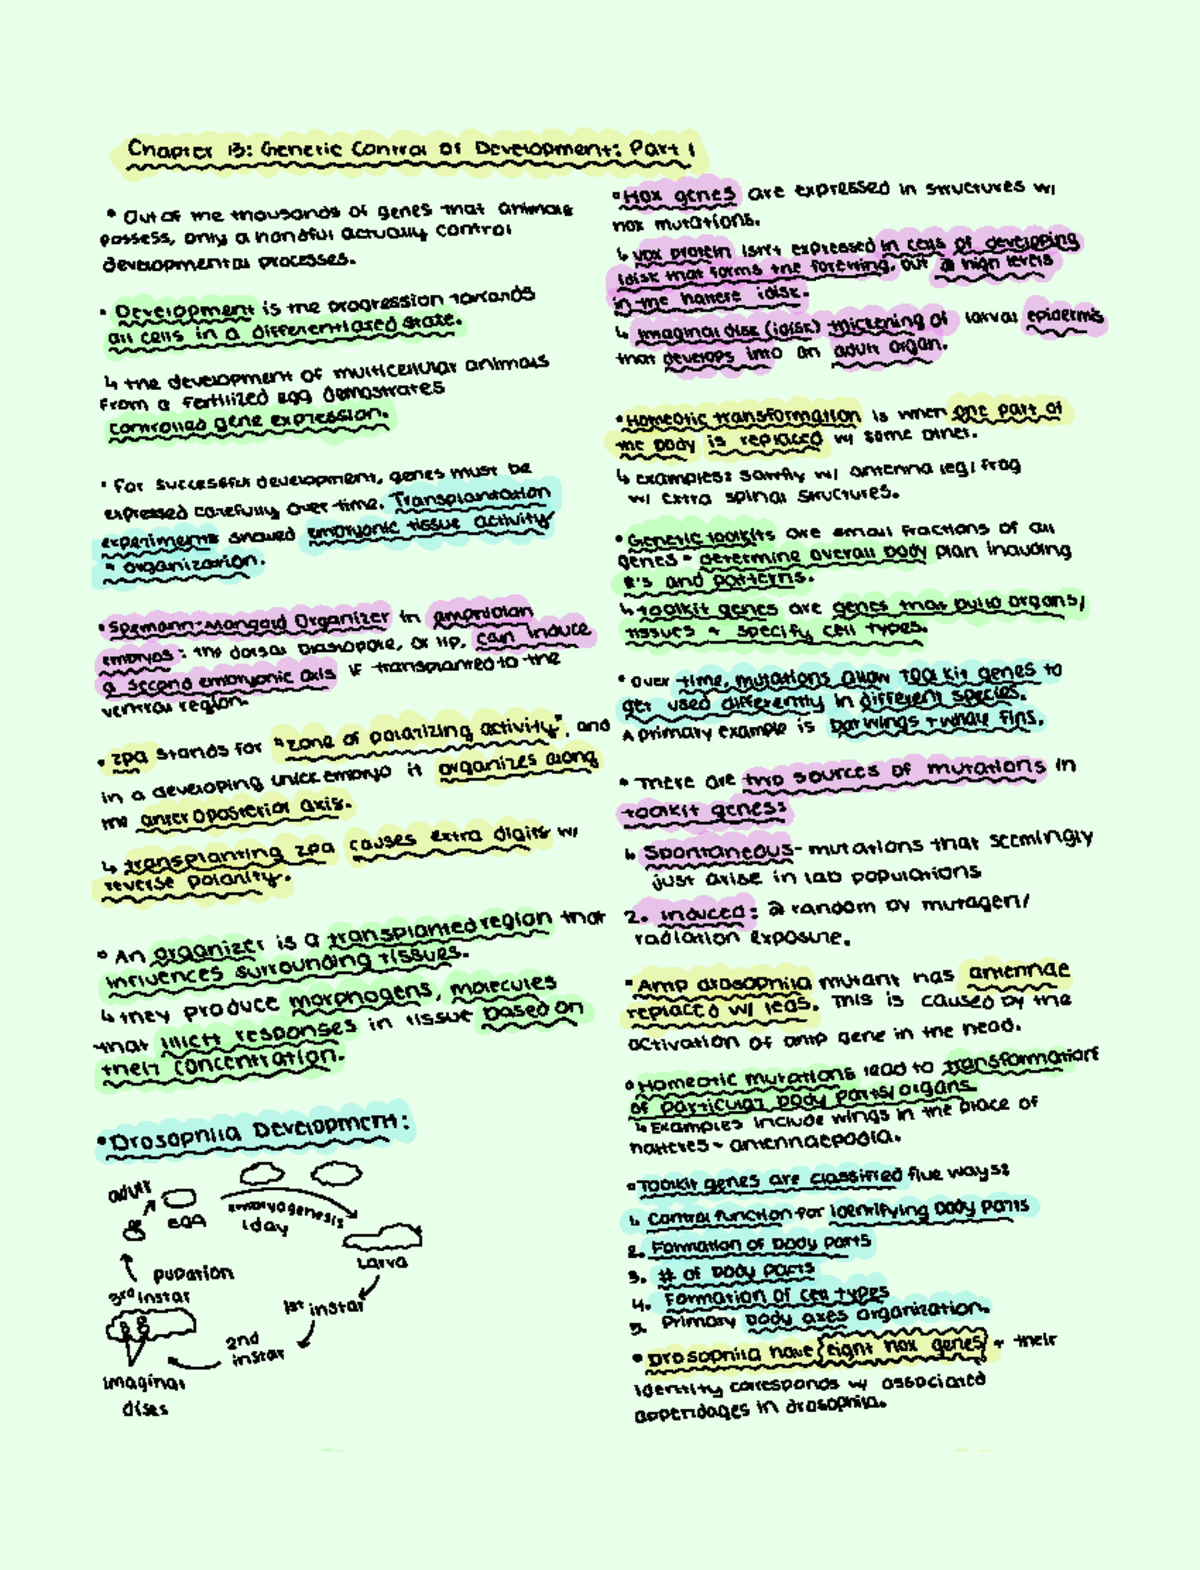 Chapter 13: Genetic Control of Development: Part 1
• Out of the thousands of genes that animals
possess, only a handful actually control
developmental processes.
• Development is the progression towards
all cells in a differentiated state.
↳ the development of multicellular animals
from a fertilized egg demostrates
controlled gene expression.
• For successful development, genes must be
expressed carefully over time. Transplantation
experiments showed embryonic tissue activity
+ organization.
• Spemann-Mangold Organizer in amphibian
embryos: the dorsal blastopore, or lip, can induce
a second embryonic axis if transplanted to the
ventral region.
• zpa stands for "zone of polarizing activity", and
in a developing chick embryo it organizes along
the anteroposterior axis.
↳ transplanting zpa causes extra digits w/
reverse polarity.
• An organizer is a transplanted region that
influences surrounding tissues.
↳ they produce morphogens, molecules
that illicit responses in tissue based on
their concentration.
• Drosophila Development:
adult
egg
embryogenesis
1day
larva
1st instar
2nd
instar
3rd instar
pupation
imaginal
discs
• Hox genes are expressed in structures w/
hox mutations.
↳ Ubx protein isn't expressed in cells of developing
idisk that forms the forewing, but @ high levels
in the haltere idisk.
↳ Imaginal disc (idisc) thickening of larval epidermis
that develops into an adult organ.
• Homeotic transformation is when one part of
the body is replaced w/ some other.
↳ examples: sawfly w/ antenna leg/frog
w/ extra spinal structures.
• Genetic toolkits are small fractions of all
genes - determine overall body plan including
#'s and patterns.
↳ toolkit genes are genes that build organs/
tissues + specify cell types.
• Over time, mutations allow toolkit genes to
get used differently in different species.
A primary example is bat wings + whale fins.
• There are two sources of mutations in
toolkit genes:
1. Spontaneous- mutations that seemingly
just arise in lab populations
2. induced: @ random by mutagen/
radiation exposure.
• Antp drosophila mutant has antennae
replaced w/ legs. This is caused by the
activation of antp gene in the head.
• Homeotic mutations lead to transformation
of particular body parts/organs.
↳ Examples include wings in the place of
halteres + antennaepodia.
• Toolkit genes are classified five ways:
1. Control function for identifying body parts
2. Formation of body parts
3. # of body parts
4. Formation of cell types
5. Primary body axes organization.
• Drosophila have {eight hox genes} + their
identity corresponds w/ associated
appendages in drosophila.